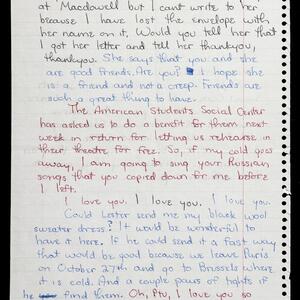 at MacDowell but I cant write to her
because I have lost the envelope with
her name on it. Would you tell her that
I got her letter and tell her thankyou,
thankyou. She says that you and she
are good friends. Are you? I hope she
is a friend and not a creep. Friends are
such a great thing to have.
The American Student's Social Center
has asked us to do a benefit for them next
week in return for letting us rehearse in
their theatre for free. So, if my cold goes
away, I am going to sing your Russian
songs that you copied down for me before
I left.
I love you. I love you. I love you.
Could Lester send me my black wool
sweater dress? It would be wonderful to
have it here. If he could send it a fast way
that would be good because we leave Paris
on October 27th and go to Brussels where
it is cold. And a couple pairs of tights if
he find them. Oh, I love you so